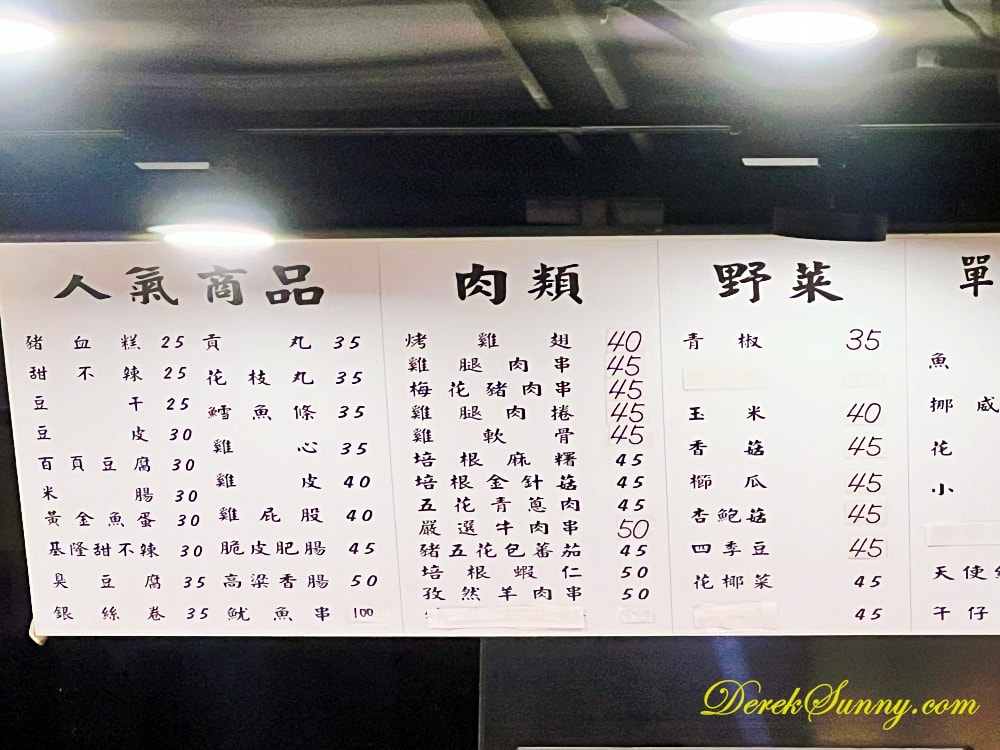 人氣商品
豬血糕 25
甜不辣 25
豆干 25
豆皮 30
百頁豆腐 30
米腸 30
黃金魚蛋 30
基隆甜不辣 30
臭豆腐 35
銀絲卷 35
貢丸 35
花枝丸 35
鱈魚條 35
雞心 35
雞皮 40
雞屁股 40
脆皮肥腸 45
高粱香腸 50
魷魚串 100
肉類
烤雞翅 40
雞腿肉串 45
梅花豬肉串 45
雞腿肉捲 45
雞軟骨 45
培根麻糬 45
培根金針菇 45
五花青蔥肉 45
嚴選牛肉串 50
豬五花包蕃茄 45
培根蝦仁 50
孜然羊肉串 50
50
野菜
青椒 35
玉米 40
香菇 45
櫛瓜 45
杏鮑菇 45
四季豆 45
花椰菜 45
45
單
魚
挪威
花
小
天使
干仔
DerekSunny.com